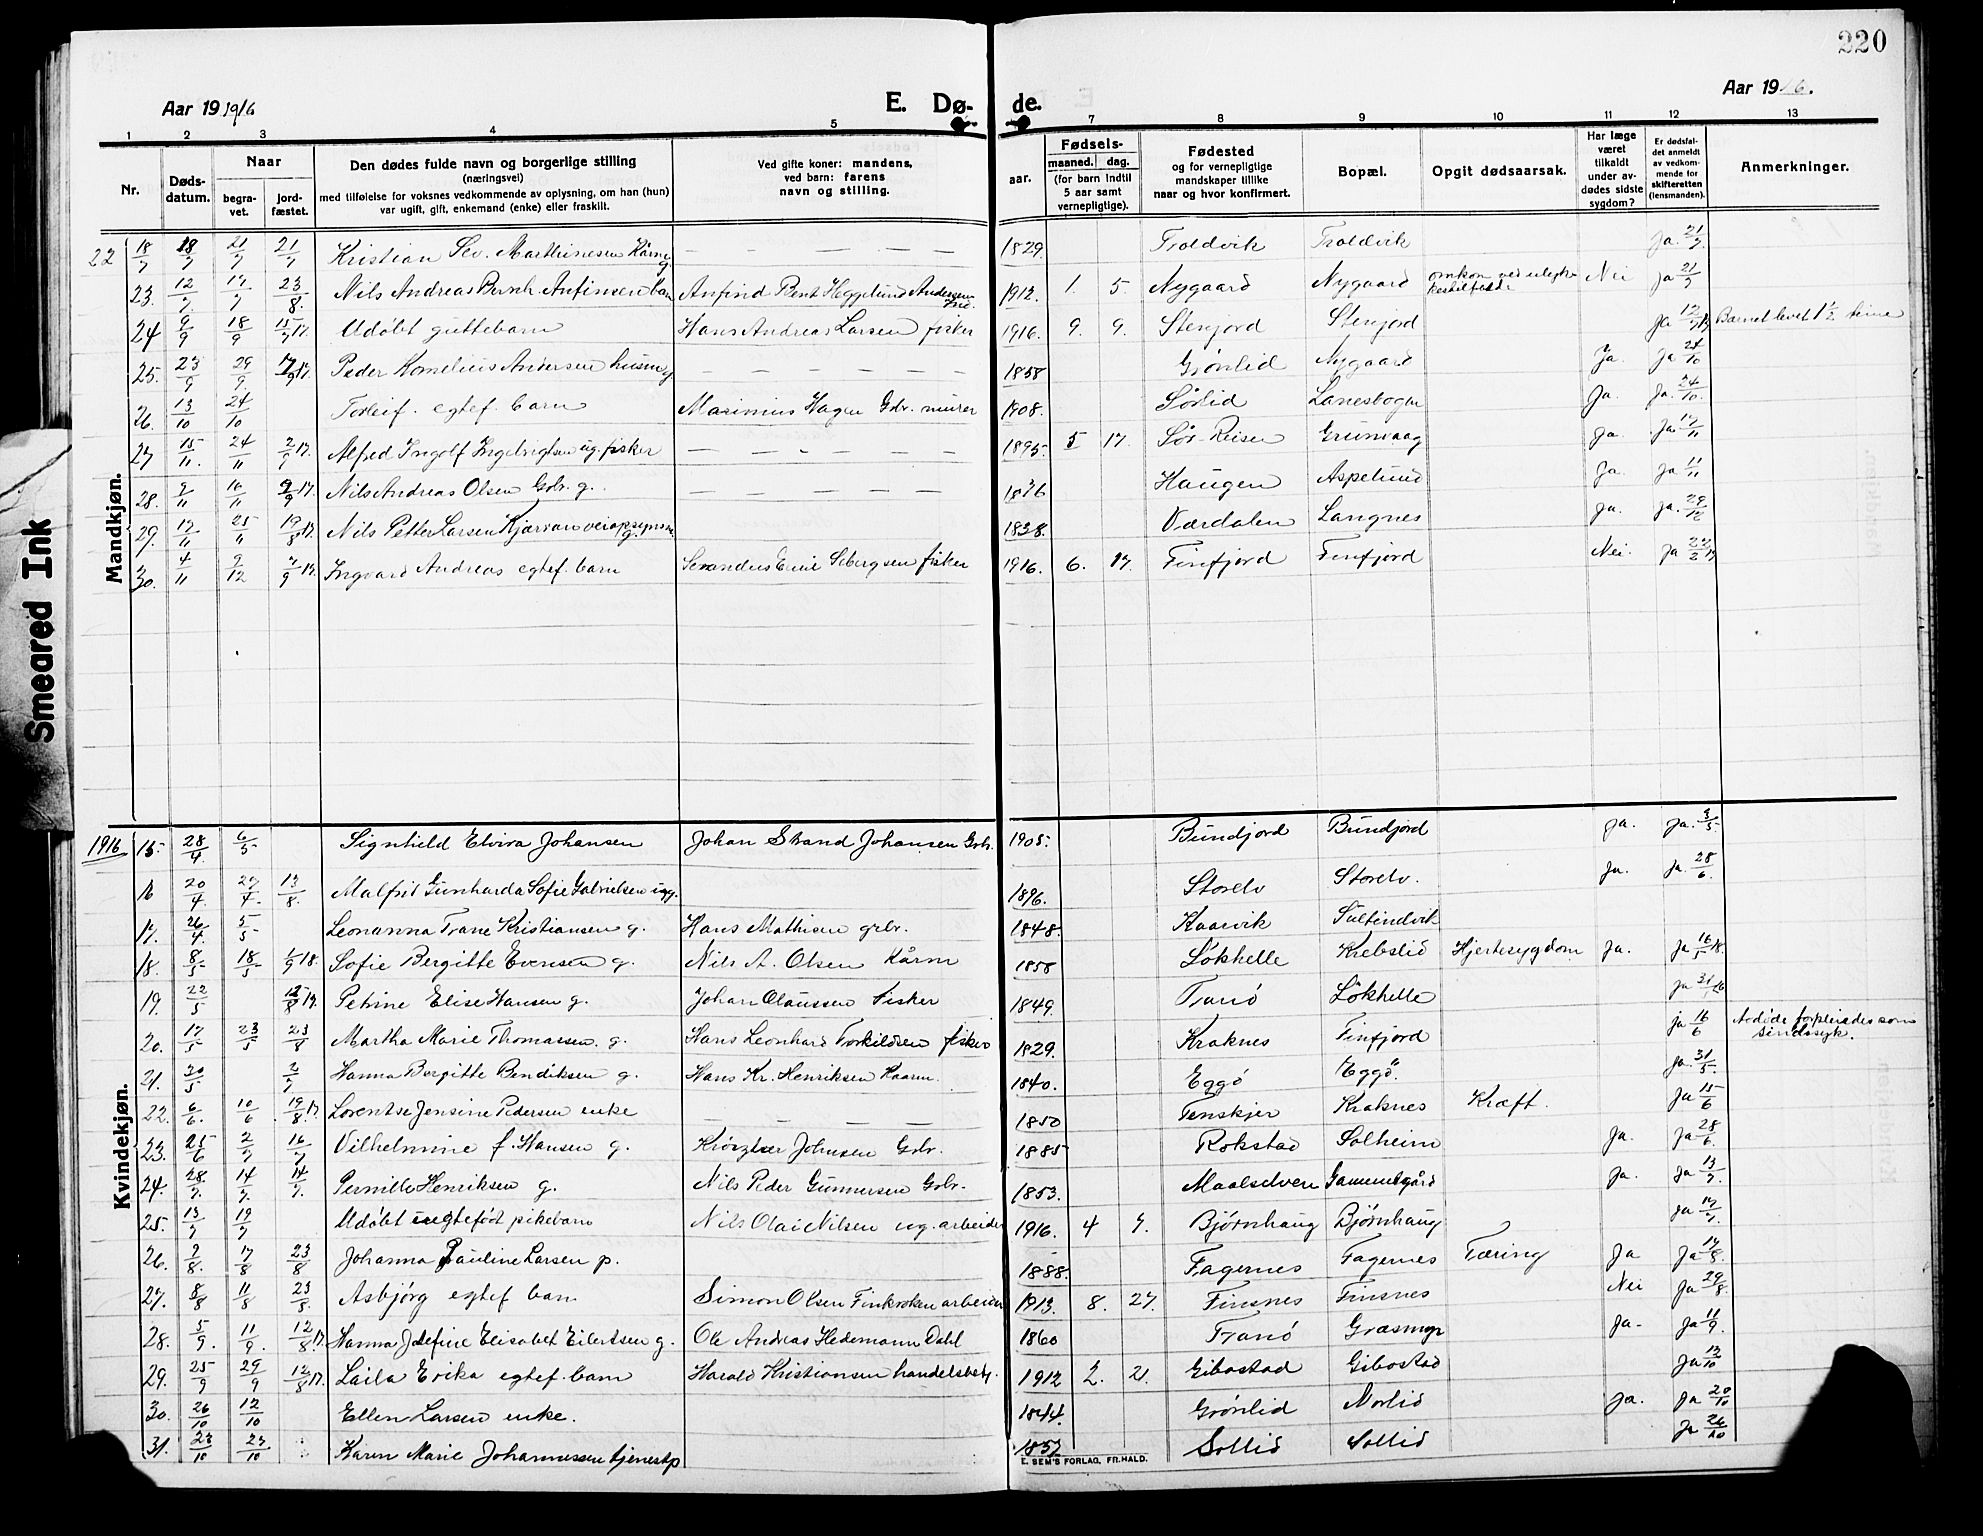 220
Aar 19 1916
E. Dø- de.
Aar 1916.
1 2 3 4 5 7 8 9 10 11 12 13
Nr.
Døds-
datum.
Naar
begra-
vet.
jord-
fæstet.
Den dødes fulde navn og borgerlige stilling
(næringsvei)
med tilføielse for voksnes vedkommende av oplysning, om han (hun)
var ugift, gift, enkemand (enke) eller fraskilt.
Ved gifte koner: mandens,
ved barn: farens
navn og stilling.
Fødsels-
aar.
maaned. dag.
(for barn indtil
5 aar samt
vernepligtige).
Fødested
og for vernepligtige
mandskaper tillike
naar og hvor konfirmert.
Bopæl.
Opgit dødsaarsak.
Har læge
været
tilkaldt
under av-
dødes sidste
sygdom?
Er dødsfal-
det anmeldt
av vedkom-
mende for
skifteretten
(lensmanden).
Anmerkninger.
Mandkjøn.
22 18/7 18/7 21/7 21/7 Kristian Sev. Marthinesen Kårm g — — — — 1829. Troldvik Troldvik Ja. 21/7
23. 12/7. 17/7 23/8. Nils Andreas Bernh. Anfinsen barn Anfind Bent Heggelund Andersen 1912. 1. 5. Nygaard Nygaard omkom ved ulykke Nei Ja 21/7
24 9/9 18/9 15/7 17. Udøbt guttebarn Hans Andreas Larsen fisker 1916. 9. 9. Stenjord Stenjord Ja Barnet levet 1½ time
25. 23/9 29/9. 17/9 17. Peder Kornelius Andersen husm g — — — — 1858 Grønlid Nygaard Ja. Ja 24/10
26. 13/10 24/10 Torleif. egtef. barn Marinius Hagen Gbr. murer 1908. Sørlid Lanesbogen Ja. Ja. 24/10.
27 15/11. 24/11 2/9 17. Alfred Ingolf Ingebrigtsen ug. fisker — — — — 1895. 5 17. Sør-Reisen Grunvaag Ja. Ja. 17/11
28. 2/11 16/11 9/9 17. Nils Andreas Olsen Gbr. g. — — — — 1836 Haugen Aspelund Ja. Ja 11/11
29. 17/11 25/11 19/8 17. Nils Petter Larsen Kjærvan veiopsynsm. g. 1838. Værdalen Langnes Ja. Ja. 29/12
30. 4/11 9/12 7/9 17. Ingvard Andreas egtef. barn Serandus Emil Sebergsen fisker 1916. 6. 17. Finfjord Finfjord Nei. Ja 22/2 17
Kvindekjøn.
1916 15. 28/4. 6/5 Signhild Elvira Johansen Johan Strand Johansen Gbr. 1905. Bundjord Bundjord Ja. Ja. 3/5.
16 20/4 27/4. 13/8. Malfrit Gunharda Sofie Gabrielsen ug. 1896. Storelv Storelv. Ja. Ja. 28/6.
17. 26/4. 5/5 Leonanna Trane Kristiansen g. Hans Mathisen gbr. 1848. Kaarvik Sultindvik
18. 8/5 18/5 1/9 18. Sofie Bergitte Evensen g. Nils A. Olsen Kårm 1858 Løkhelle Krebslid Hjertesygdom Ja. Ja 16/5 18.
19. 22/5 13/8 17. Petrine Elise Hansen g. Johan Olaussen Fisker 1849. Tranø Løkhelle Ja 31/ 16
20. 17/5 23/5 23/8 Martha Marie Thomassen. g. Hans Leonhard Torkildsen fisker 1829. Kraknes Finfjord ja 16/6 Avdøde forpleiedes som sindssyk.
21. 20/5 2/7 Hanna Bergitte Bendiksen g. Hans Kr. Henriksen Kaarm. 1840. Eggø Eggø Ja. 31/5.
22. 6/6. 10/6 19/8 17. Lorentse Jensine Pedersen enke — — — 1850 Tenskjer Kraknes Kræft. Ja 15/6
23. 25/6 2/7 16/7 Vilhelmine f. Hansen g. Johnsen Gbr. 1885 Rokstad Solheim Ja. Ja 28/6.
24. 28/7. 14/7. 14/7. Pernille Henriksen g. Nils Peder Gunnersen Gbr. 1853. Maalselven Gammelgård Ja. Ja 13/7
25. 13/7 19/7 Udøbt uegtefødt pikebarn Nils Olai Nilsen ug. arbeider 1916. 4 7. Bjørnhaug Bjørnhaug Ja 17/7.
26. 2/8. 17/8 23/8 Johanna Pauline Larsen p. 1888. Fagernes Fagernes Tæring Ja Ja 17/8.
27. 8/8 11/8 23/8. Asbjørg egtef barn Simon Olsen Finkroken arbeider 1913. 8. 27. Finsnes Finsnes Nei Ja 29/8
28. 5/9. 11/9. 12/8 17. Hanna Josefine Elisabet Eilertsen g. Ole Andreas Hedemann Dahl 1860 Tranø Græsmyr Ja- Ja 11/9.
29. 25/9 29/9 12/8 17. Laila Erika egtef. barn Harald Kristiansen handelsbetj. 1912 2. 21. Gibostad Gibostad Ja 13/10
30. 26/10 12/10 Ellen Larsen enke. 1844. Grønlid Norlid Ja. Ja 20/10
31. 23/10 27/10 Karen Marie Johannessen tjenestp 1857 Sollid Sollid Ja 26/10
E. SEM'S FORLAG, FR.HALD.
Smeared Ink